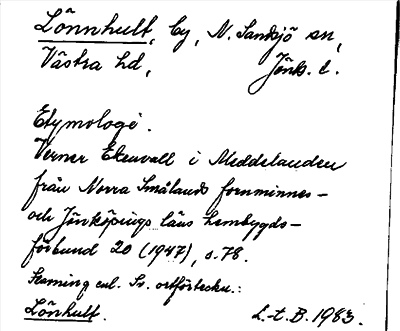 Lönnhult, by, N. Sandsjö sn,
Västra hd, Jönk. l.
Etymologi.
Verner Ekenvall i Meddelanden
från Norra Smålands fornminnes-
och Jönköpings läns hembygds-
förbund 20 (1947), s. 78.
Stavning enl. Sv. ortförteckn.:
Lönhult. L-t. B. 1983.